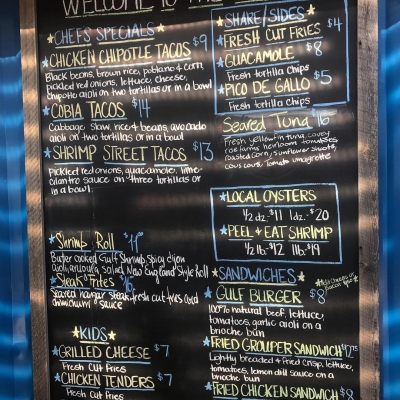 WELCOME TO THE
CHEFS SPECIALS
CHICKEN CHIPOTLE TACOS $9
Black beans, brown rice, potano & corn,
pickled red onions, lettuce, cheese,
chipotle aioli on two tortillas or in a bowl
COBIA TACOS $14
Cabbage slaw, rice & beans, avocado
aioli on two tortillas or in a bowl
SHRIMP STREET TACOS $13
Pickled red onions, guacamole, lime-
cilantro sauce on three tortillas or
in a bowl.
Shrimp Roll $14.00
Butter cooked Gulf Shrimp, spicy dijon
aioli, arugula salad New England Style Roll
Steak Frites $16
Seared hangar steak, fresh cut fries and
chimichurri sauce
KIDS
GRILLED CHEESE $7
Fresh Cut Fries
CHICKEN TENDERS $7
Fresh Cut Fries
SHARE/SIDES
FRESH CUT FRIES $4
GUACAMOLE $8
Fresh tortilla chips
PICO DE GALLO $5
Fresh tortilla chips
Seared Tuna $16
Fresh yellowfin tuna, covey
rise farms heirloom tomatoes,
roasted corn, sunflower shoots,
cous cous, tomato vinaigrette
LOCAL OYSTERS
1/2 dz: $11 1dz: $20
PEEL & EAT SHRIMP
1/2 lb: $12 1lb: $19
SANDWICHES
GULF BURGER $8
100% natural beef, lettuce,
tomatoes, garlic aioli on a
brioche bun
FRIED GROUPER SANDWICH $17.75
Lightly breaded & fried crisp, lettuce,
tomatoes, lemon dill sauce on a
brioche bun
FRIED CHICKEN SANDWICH $8